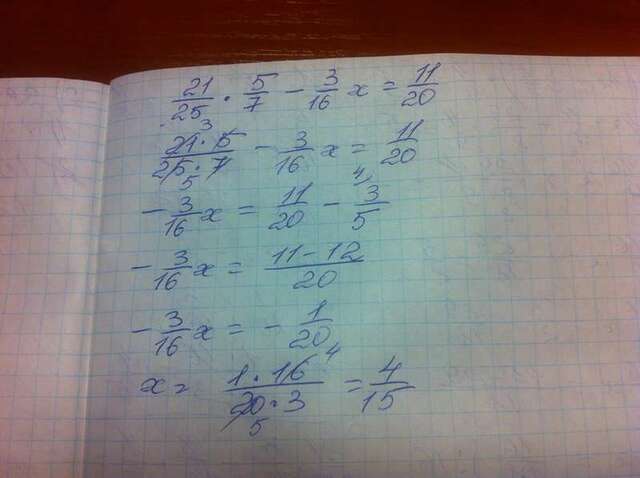 21/25 · 5/7 - 3/16 x = 11/20
21·5/25·7 - 3/16 x = 11/20
- 3/16 x = 11/20 - 3/5
- 3/16 x = 11-12/20
- 3/16 x = - 1/20
x = 1·16/20·3 = 4/15